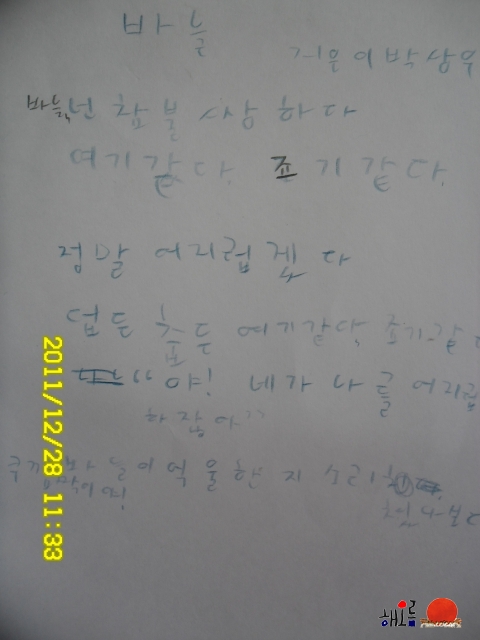 바늘
지은이박상우
바늘, 넌 참 불 상 하다
여기갔다. 죠기갔다.
정말 어지럽겠다
덥든 춥든 여기갔다, 죠기갔
"야! 네가 나를 어지럽
하잖아"
바늘이 억울한지 소리
2011/12/28 11:33
해오름